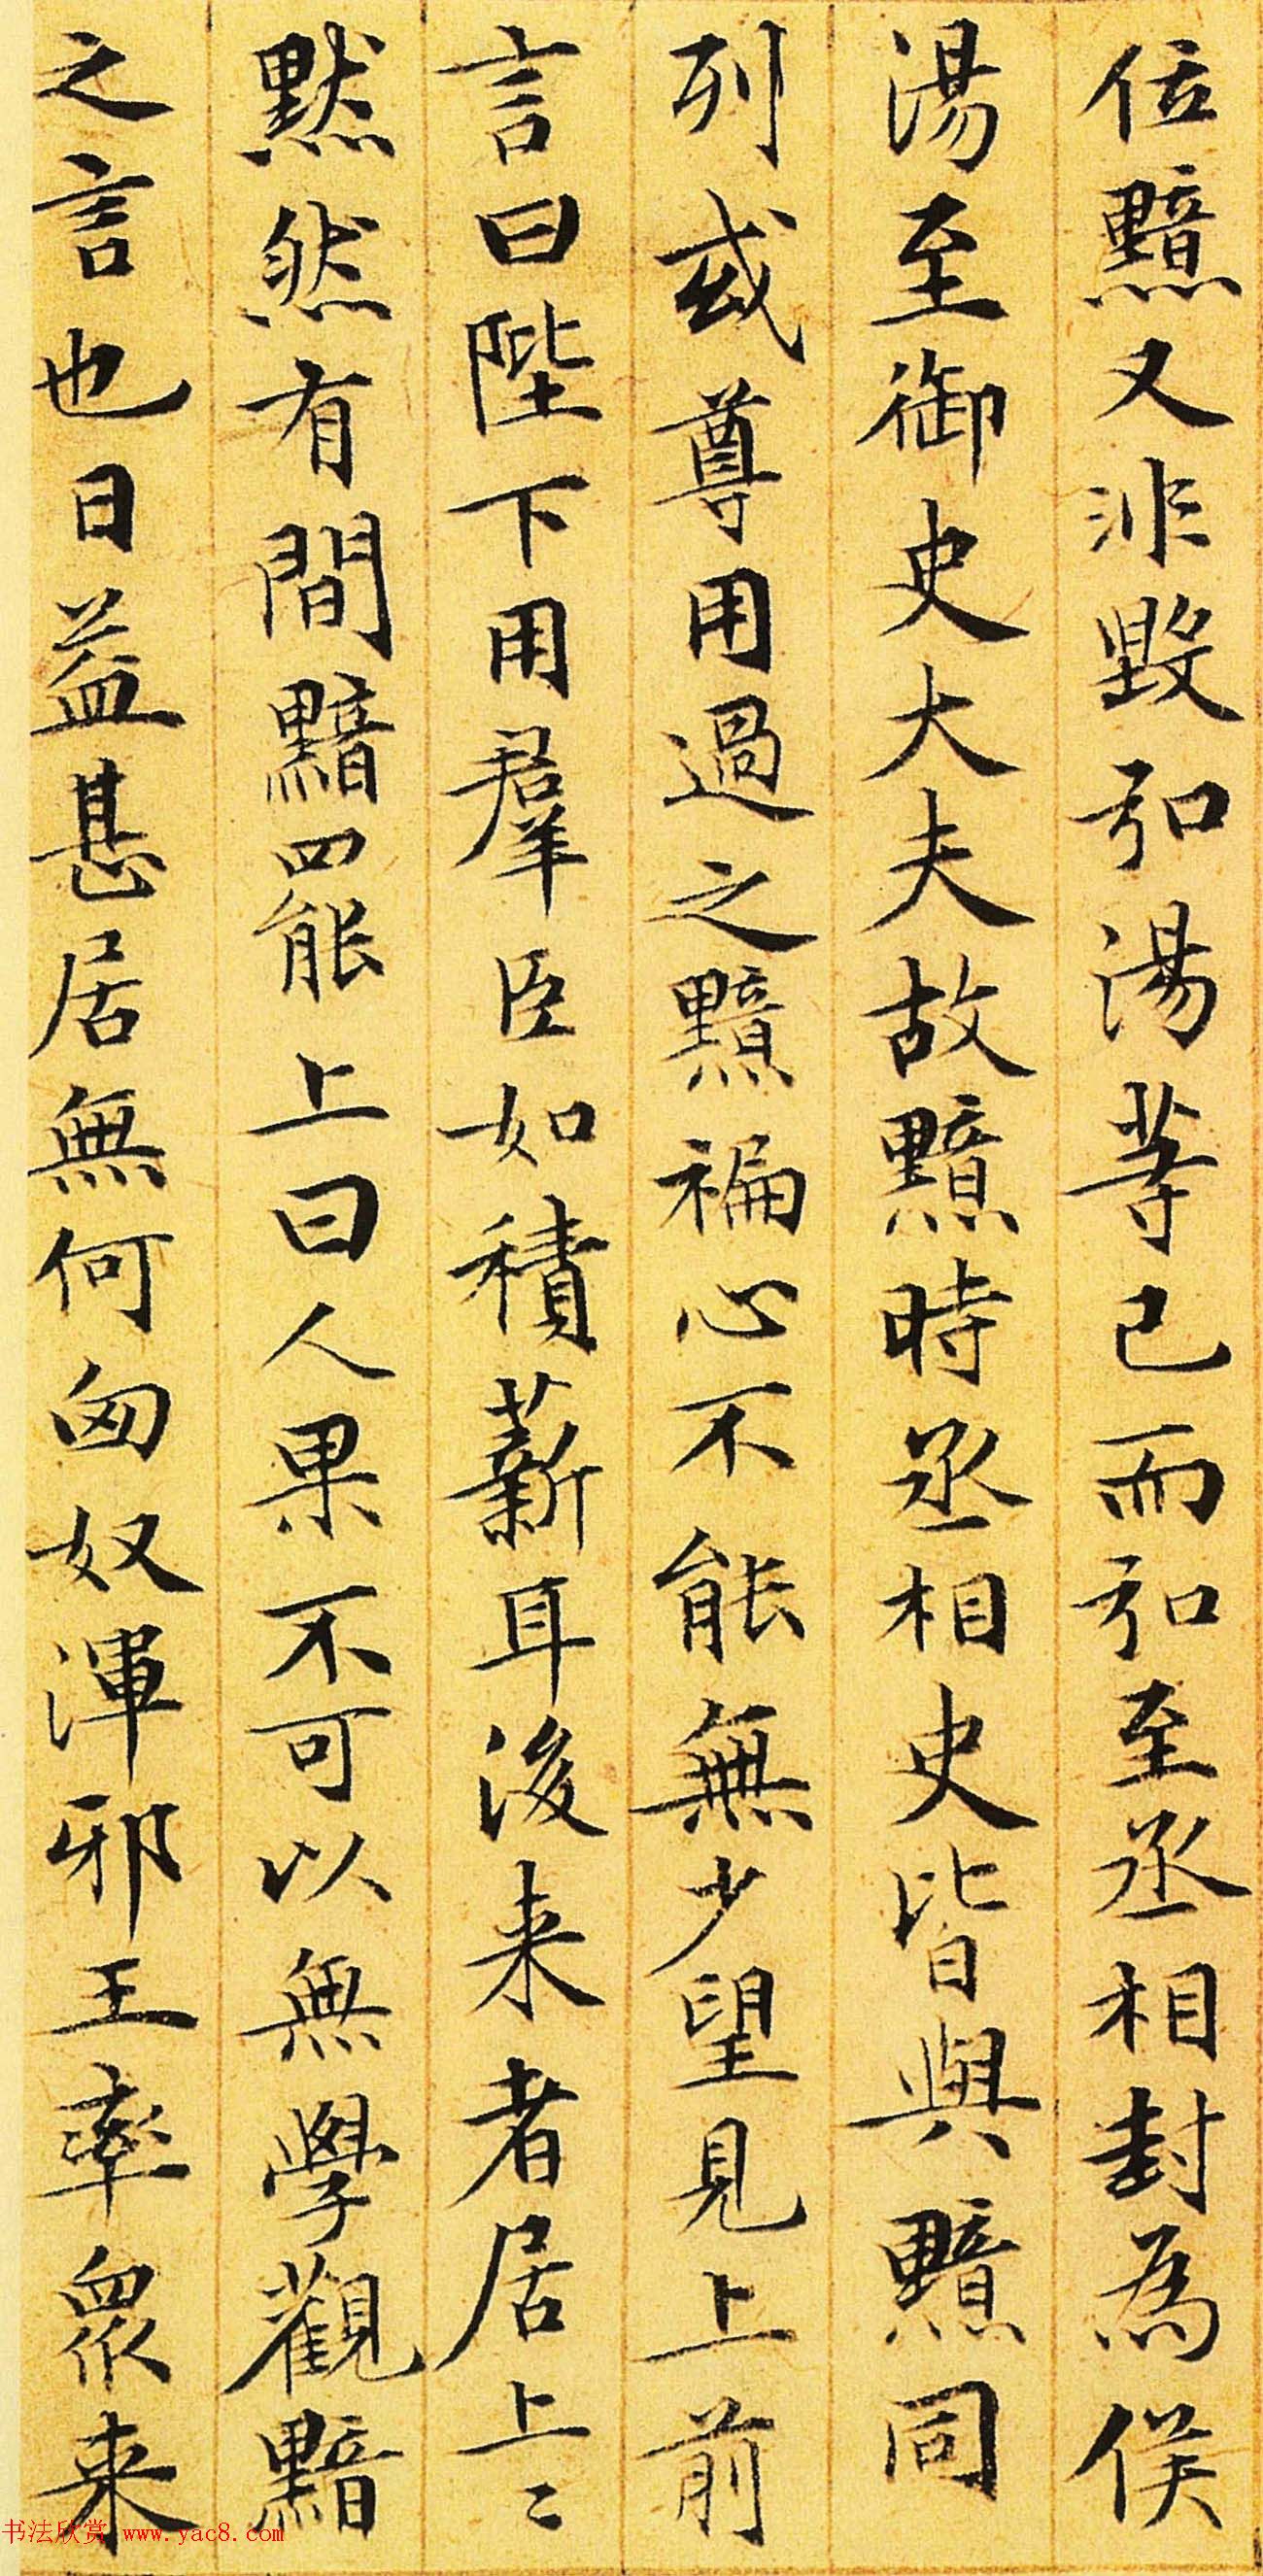 位黯又非毀弘湯等已而弘至丞相封為侯
湯至御史大夫故黯時丞相史皆與黯同
列或尊用過之黯褊心不能無少望見上前
言曰陛下用羣臣如積薪耳後来者居上〻
默然有間黯罷上曰人果不可以無學觀黯
之言也日益甚居無何匈奴渾邪王率眾来
书法欣赏 www.yac8.com